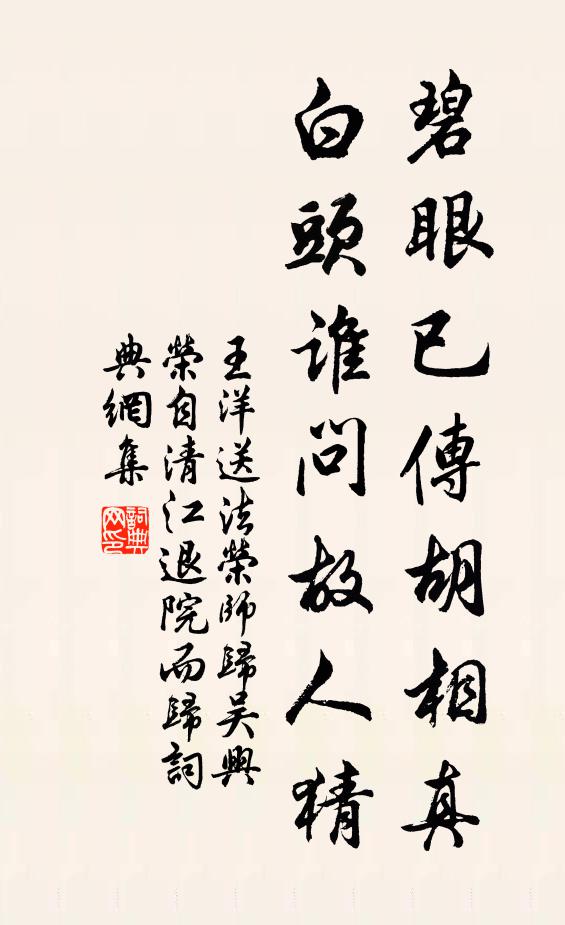 碧眼已傳胡相真
白頭誰問故人猜
王洋送法榮師歸吴興
榮自清江退院而歸詞
典網集
詞典
网印